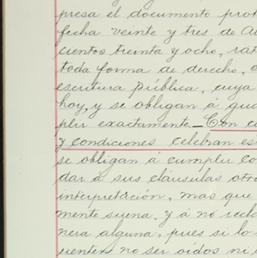 presa el documento pro
fecha veinte y tres de A
cientos treinta y ocho, rat
toda forma de derecho, o
escritura pública, cuya
hoy, y se obligan á gua
plir exactamente. Con c
y condiciones celebran es
se obligan á cumplir co
dar á sus cláusulas otra
interpretación, mas que
mente suena, y á no recla
nera alguna, pues si lo
uenten no ser oidos ni